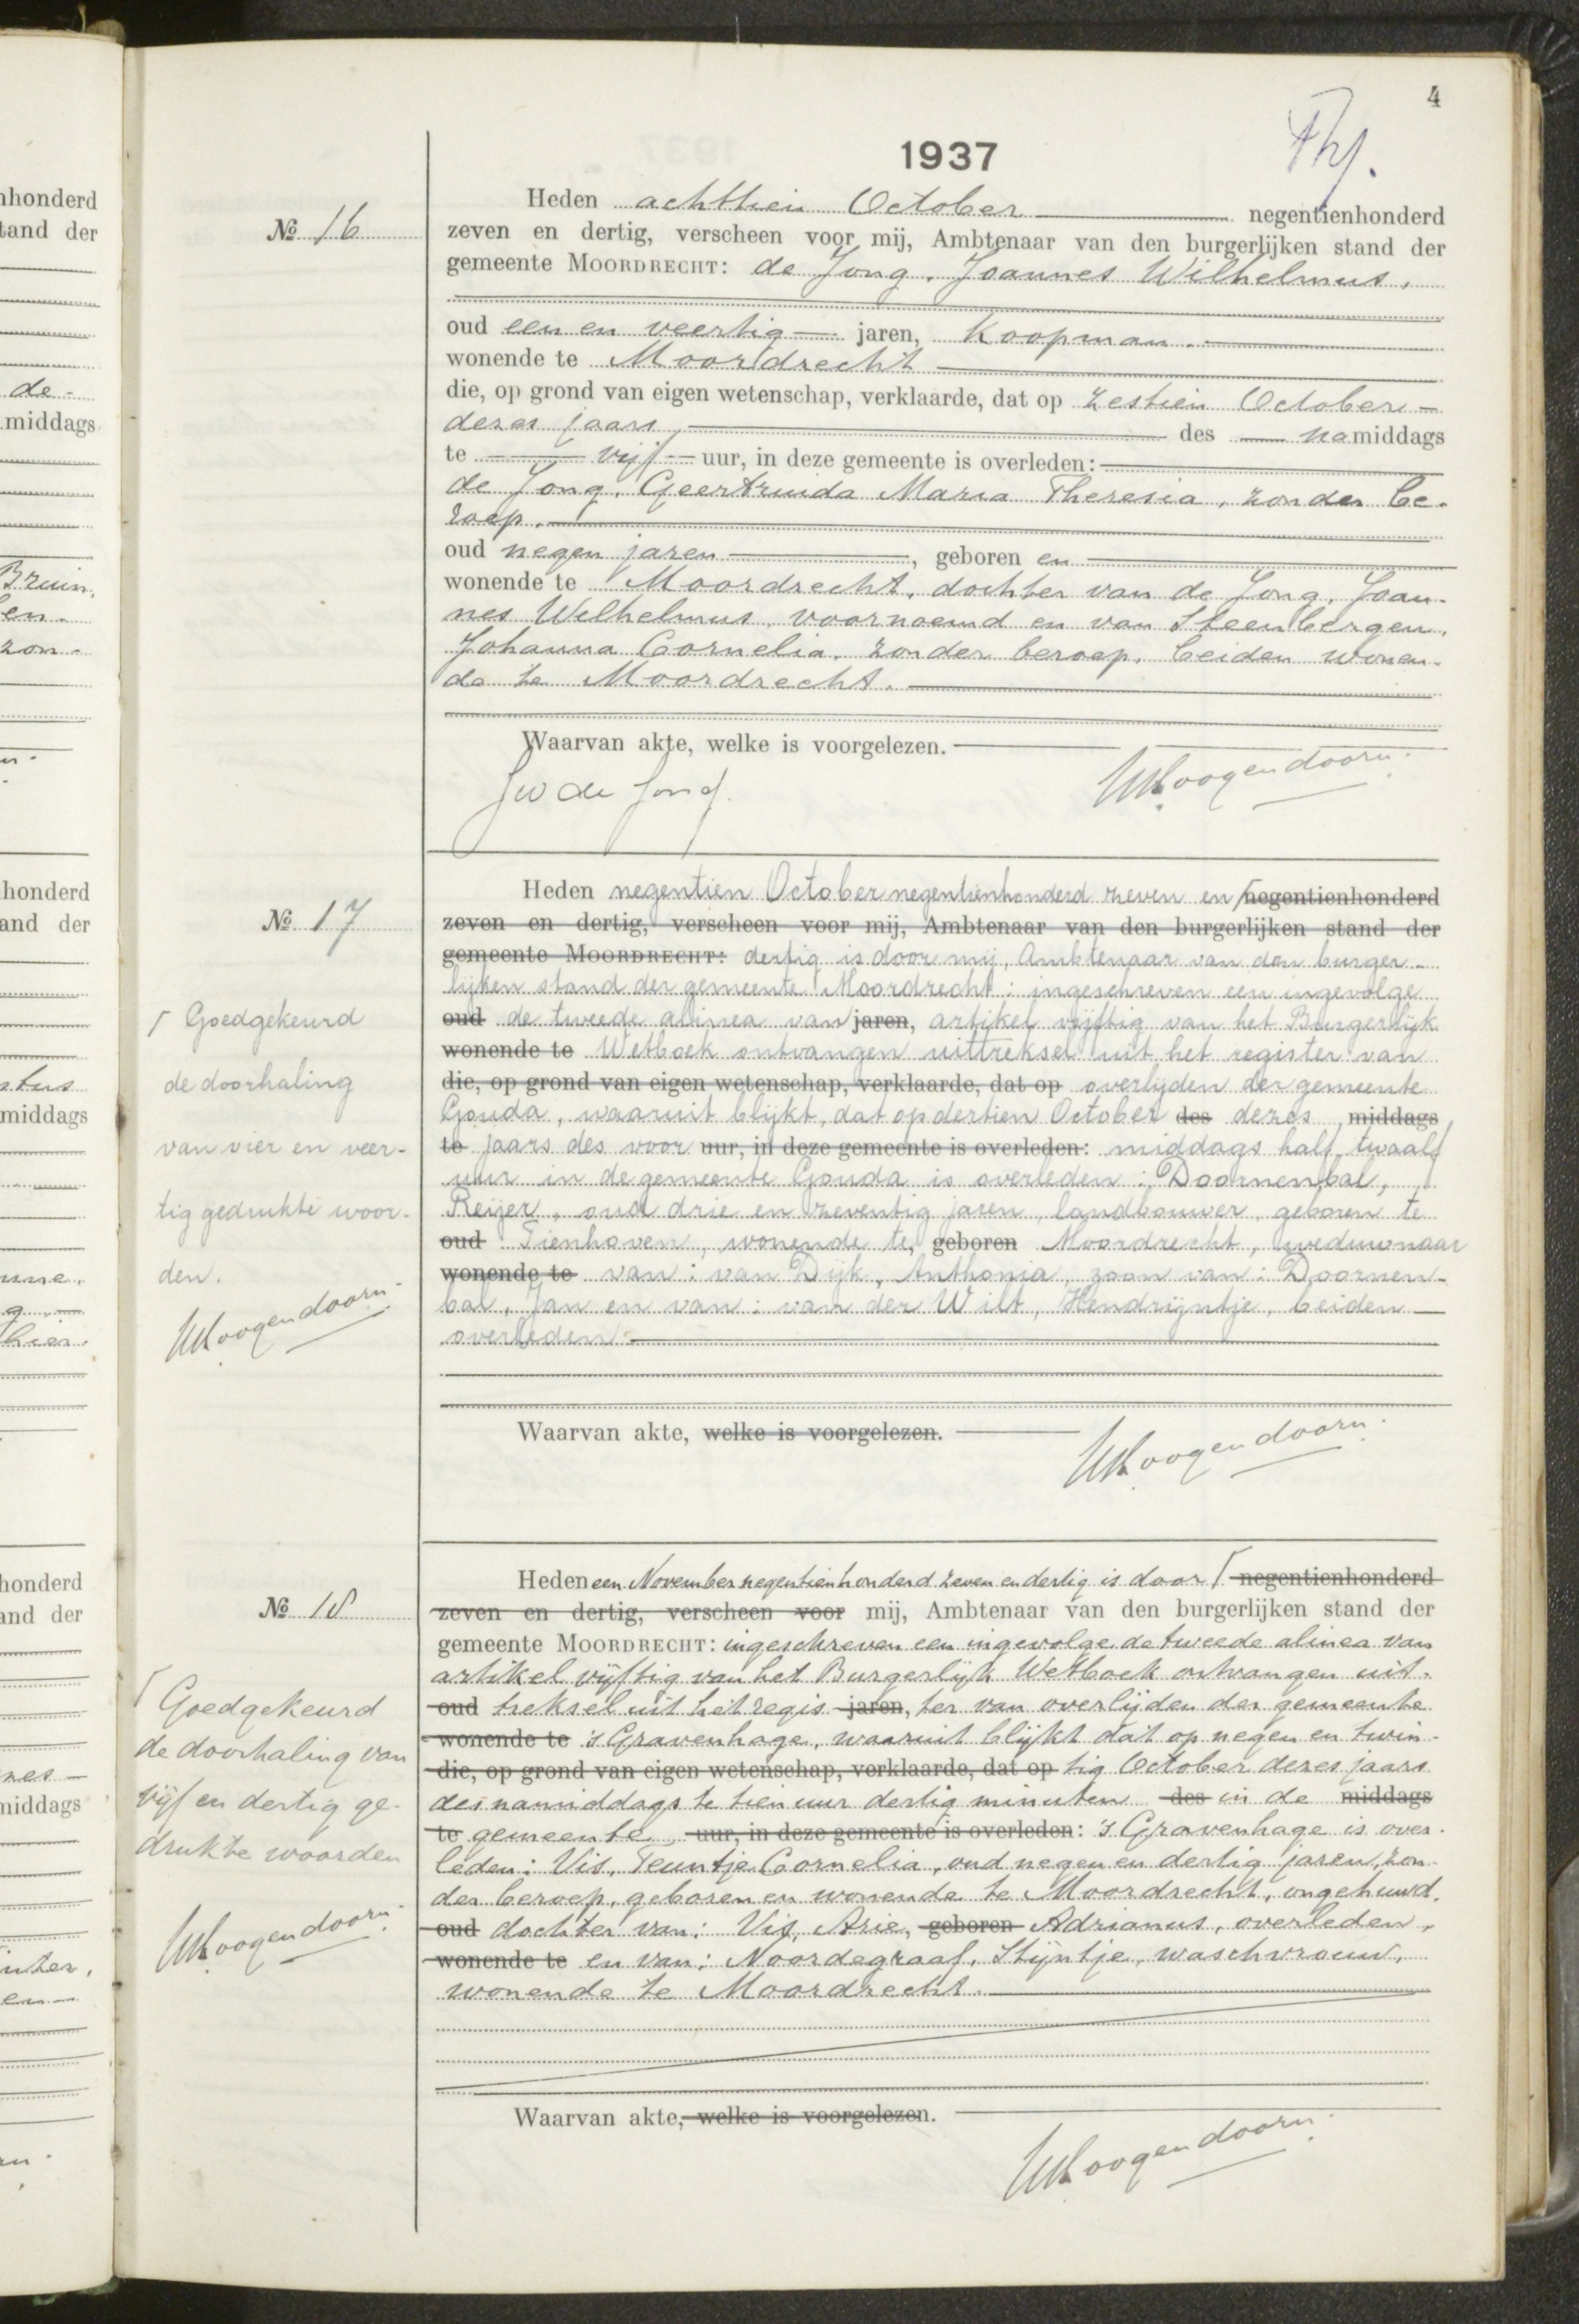 4
1937
Nº 16
Heden achttien October negentienhonderd
zeven en dertig, verscheen voor mij, Ambtenaar van den burgerlijken stand der
gemeente MOORDRECHT: de Jong, Joannes Wilhelmus,
oud een en veertig jaren, koopman.
wonende te Moordrecht
die, op grond van eigen wetenschap, verklaarde, dat op zestien October
dezes jaars, des namiddags
te vijf uur, in deze gemeente is overleden:
de Jong, Geertruida Maria Theresia, zonder be-
roep.
oud negen jaren, geboren en
wonende te Moordrecht, dochter van de Jong, Joan-
nes Wilhelmus, voornoemd en van Steenbergen,
Johanna Cornelia, zonder beroep, beiden wonen-
de te Moordrecht.
Waarvan akte, welke is voorgelezen.
JW de Jong. Hoogendoorn.
Nº 17
Heden negentien October negentienhonderd zeven en negentienhonderd
zeven en dertig, verscheen voor mij, Ambtenaar van den burgerlijken stand der
gemeente MOORDRECHT: dertig is door mij, Ambtenaar van den burger-
lijken stand der gemeente Moordrecht: ingeschreven een ingevolge
oud de tweede alinea van jaren, artikel vijftig van het Burgerlijk
wonende te Wetboek ontvangen uittreksel uit het register van
die, op grond van eigen wetenschap, verklaarde, dat op overlijden der gemeente
Gouda, waaruit blijkt, dat op dertien October des dezes middags
te jaars des voor uur, in deze gemeente is overleden: middags half twaalf
uur in de gemeente Gouda is overleden: Doornenbal,
Reijer, oud drie en zeventig jaren, landbouwer, geboren te
oud Tienhoven, wonende te, geboren Moordrecht, weduwnaar
wonende te van: van Dijk, Anthonia, zoon van: Doornen-
bal, Jan en van: van der Wilt, Hendrijntje, beiden
overleden.
Waarvan akte, welke is voorgelezen.
Hoogendoorn.
Goedgekeurd
de doorhaling
van vier en veer-
tig gedrukte woor-
den.
Hoogendoorn.
Nº 18
Heden een November negentienhonderd zeven en dertig is door negentienhonderd
zeven en dertig, verscheen voor mij, Ambtenaar van den burgerlijken stand der
gemeente MOORDRECHT: ingeschreven een ingevolge de tweede alinea van
artikel vijftig van het Burgerlijk Wetboek ontvangen uit-
oud treksel uit het regis jaren, ter van overlijden der gemeente
wonende te 's Gravenhage, waaruit blijkt dat op negen en twin-
die, op grond van eigen wetenschap, verklaarde, dat op tig October dezes jaars
des namiddags te tien uur dertig minuten des in de middags
te gemeente uur, in deze gemeente is overleden: 's Gravenhage is over-
leden: Vis, Teuntje Cornelia, oud negen en dertig jaren, zon-
der beroep, geboren en wonende te Moordrecht, ongehuwd,
oud dochter van: Vis, Arie, geboren Adrianus, overleden,
wonende te en van: Noordegraaf, Stijntje, waschvrouw,
wonende te Moordrecht.
Waarvan akte, welke is voorgelezen.
Hoogendoorn.
Goedgekeurd
de doorhaling van
vijf en dertig ge-
drukte woorden
Hoogendoorn.